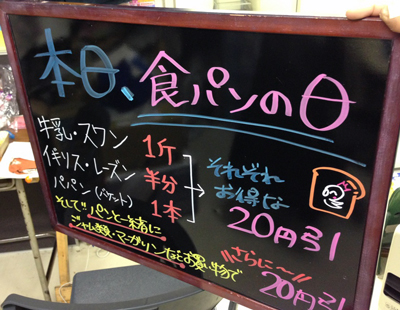 本日、食パンの日
牛乳・スワン 1斤
イギリス・レーズン 半分
パパン(バケット) 1本
それぞれ
お得な
20円引
そして パンと一緒に
ジャム類・マーガリンなどお買い物で
さらに〜
20円引